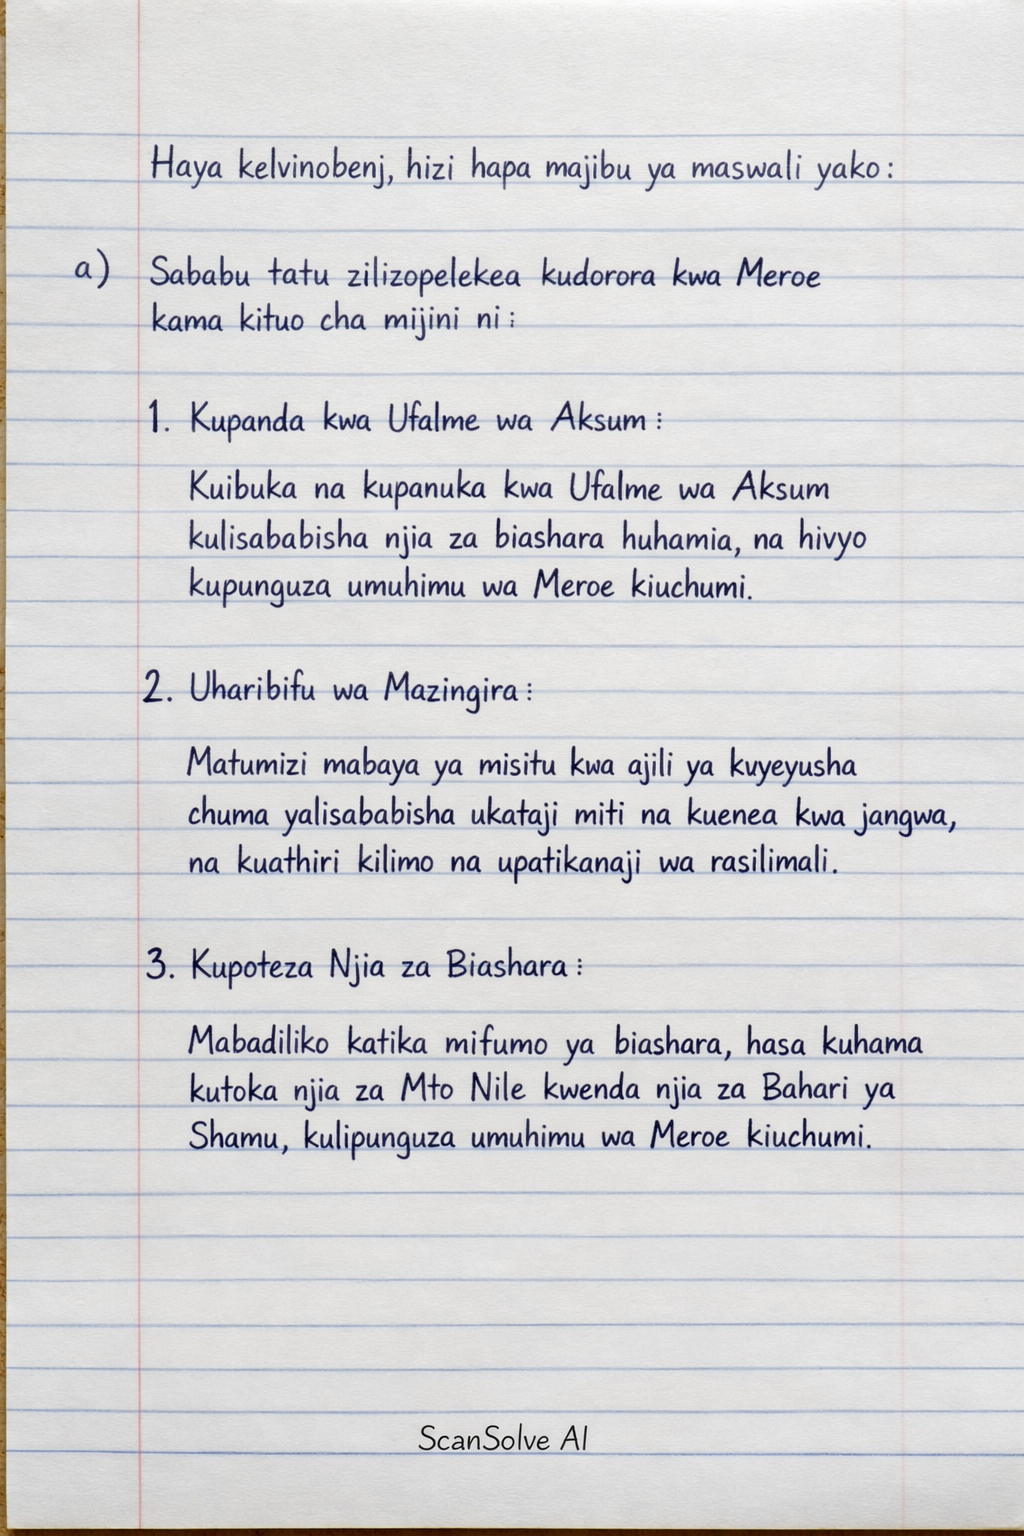 Haya kelvinobenj, hizi hapa majibu ya maswali yako:
a) Sababu tatu zilizopelekea kudorora kwa Meroe
kama kituo cha mijini ni:
1. Kupanda kwa Ufalme wa Aksum:
Kuibuka na kupanuka kwa Ufalme wa Aksum
kulisababisha njia za biashara huhamia, na hivyo
kupunguza umuhimu wa Meroe kiuchumi.
2. Uharibifu wa Mazingira:
Matumizi mabaya ya misitu kwa ajili ya kuyeyusha
chuma yalisababisha ukataji miti na kuenea kwa jangwa,
na kuathiri kilimo na upatikanaji wa rasilimali.
3. Kupoteza Njia za Biashara:
Mabadiliko katika mifumo ya biashara, hasa kuhama
kutoka njia za Mto Nile kwenda njia za Bahari ya
Shamu, kulipunguza umuhimu wa Meroe kiuchumi.
ScanSolve AI